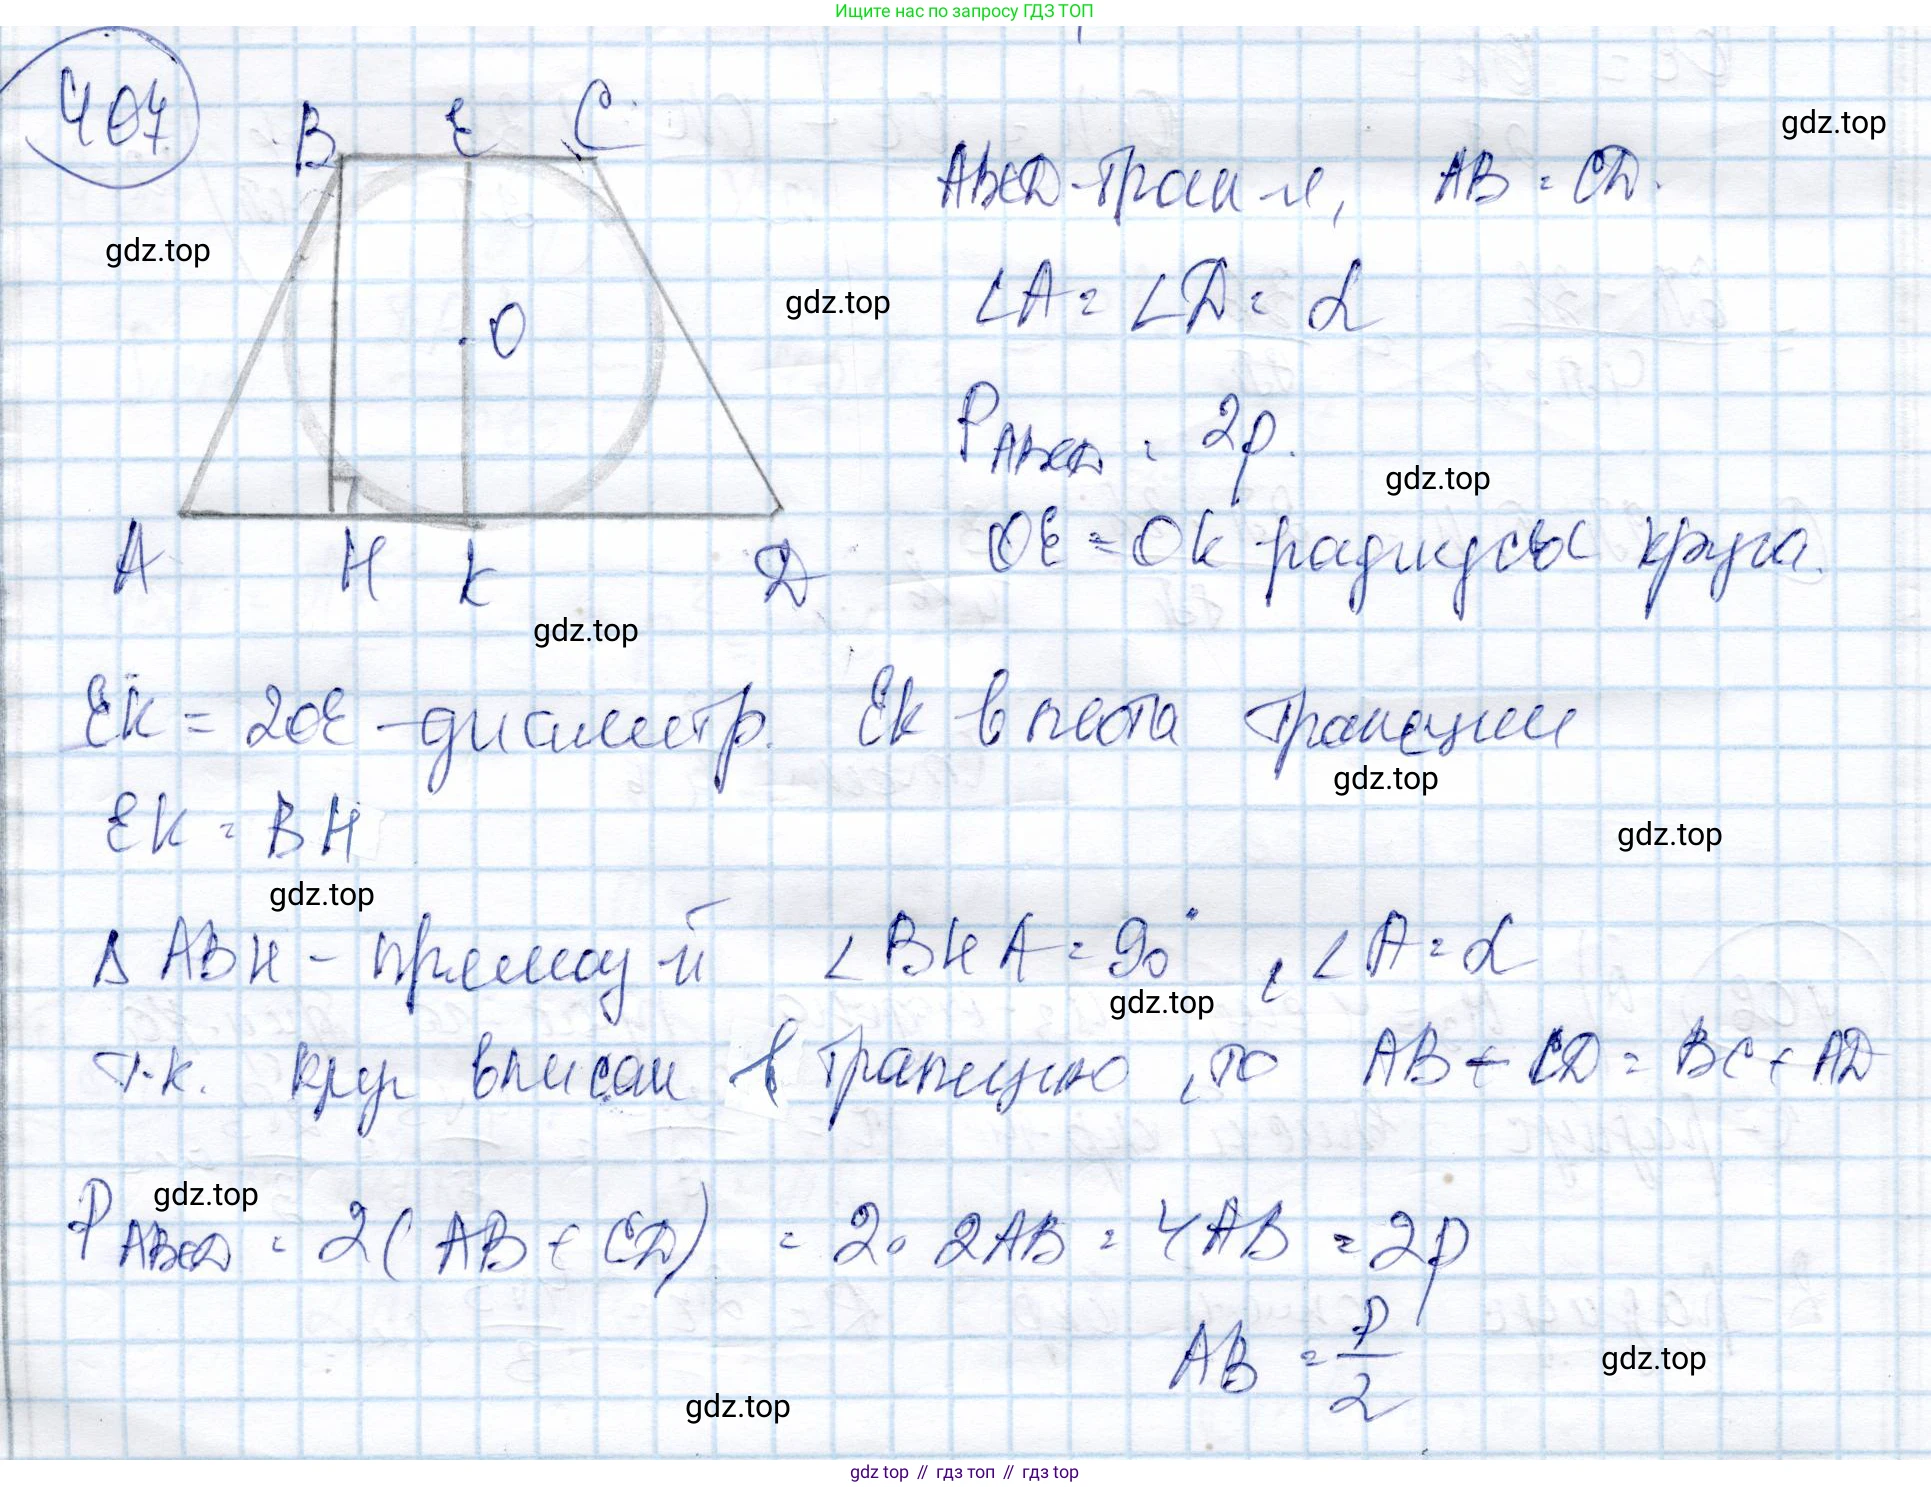 Ищите нас по запросу ГДЗ ТОП
407
B E C
gdz.top
ABCD - трап-я, AB = CD.
gdz.top
gdz.top
∠A = ∠D = α
O
P ABCD = 2p.
gdz.top
OE = OK - радиусы круга.
A H K D
gdz.top
EK = 2OE - диаметр. EK высота трапеции
gdz.top
EK = BH
gdz.top
gdz.top
Δ ABH - прямоуг-й ∠BHA = 90°, ∠A = α
gdz.top
т.к. круг вписан в трапецию, то AB + CD = BC + AD
gdz.top
P ABCD = 2(AB + CD) = 2 · 2AB = 4AB = 2p
AB = p/2
gdz.top
gdz.top
gdz top // гдз топ // гдз top